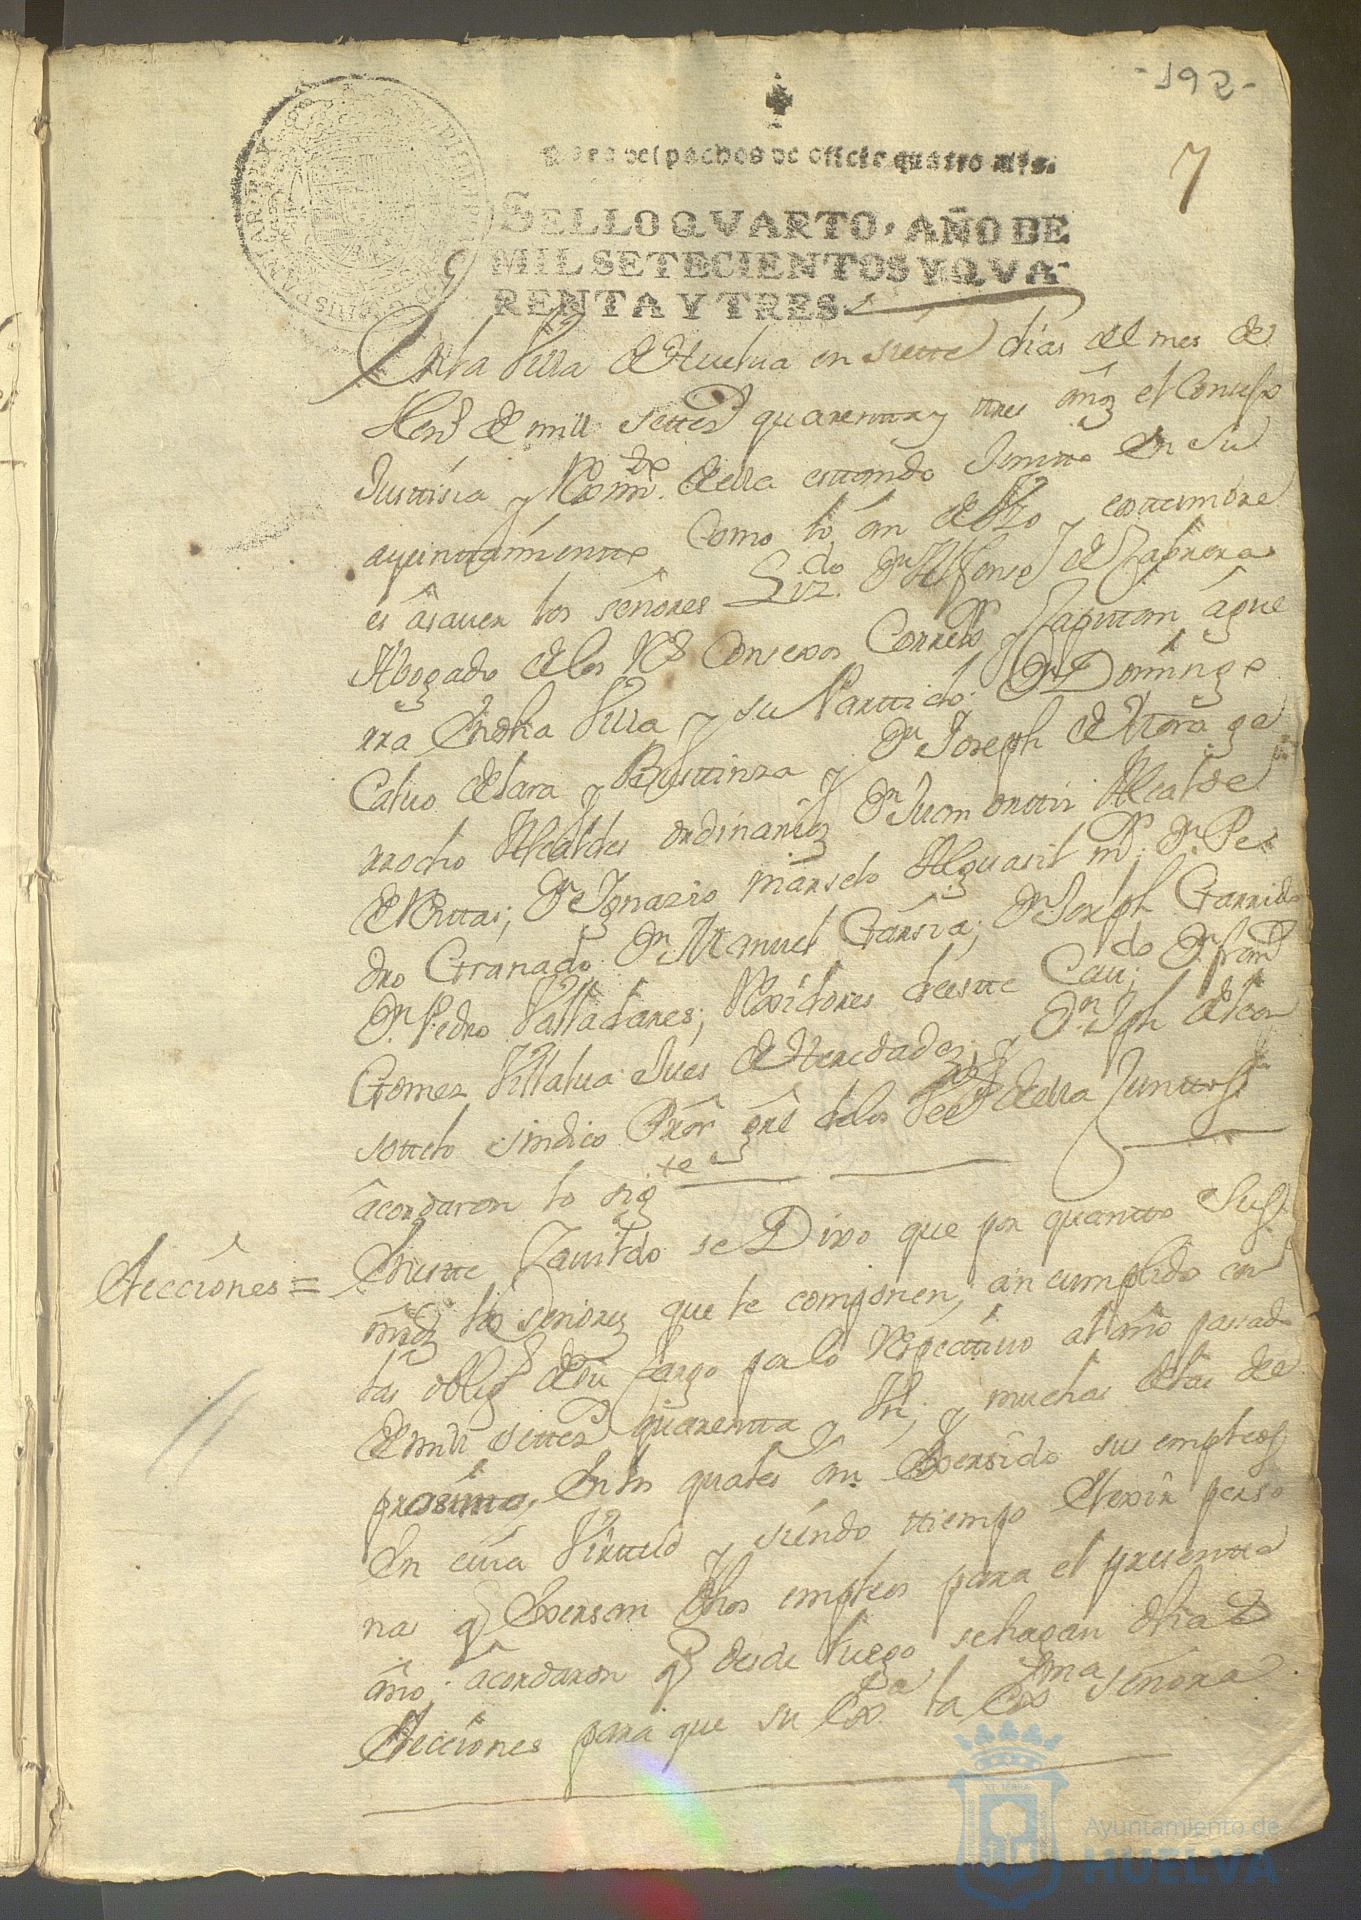 -192-
7
Para despachos de oficio quatro mrs.
SELLO QVARTO, AÑO DE
MIL SETECIENTOS Y QVA-
RENTA Y TRES.
En la Villa de Huelua en siette dias del mes de
Hen.º de mill settez.s quarentta y ttres añ.s el Consejo
Justtisia y Reximi.tto de ella esttando Juntto en su
ayunttamientto como lo an de Vso y costtumbre
es âsauer los señores Liz.do Dn Alfonso de Cabrera
Abogado de los R.s Consexos Correx.or y Capitan âgue
rra En dha Villa y su Parttido; Dn Domingo
Caluo de lara y Busttinza y Dn Joseph de Mora ga
rrocho Alcaldes ordinarios Dn Juan orttiz Alcalde
de Rittas; Dn Ignazio Marselo Alguasil mr. Dn. Pe
dro Granado Dn Manuel Garsia; Dn Joseph Garrido
Dn Pedro Valladares; Rexidores de estte Cau.do Dn fran.co
Gomez Villalua Jues de Heredades y Dn Jph de leon
sottelo sindico Pror. grl de los Vez.os de ella Junttos
âcordaron lo sig.te
Elecciones =
En estte Cauildo se Dixo que por quantto Sus
mrds los Señores que le componen, an cumplido con
las oblig.s de su Cargo por lo respecttiuo al año passado
de mill settez.s quarentta y Vn, y muchas de las de
proximo, En los quales an Exersido sus empleos
En cuia Virttud y siendo ttiempo Elexir perso
nas q Exersan dhos empleos para el presentte
año; acordaron q desde luego se hagan dhas
Elecciones para que su Exa. la Exma señora
Ayuntamiento de
HUELVA